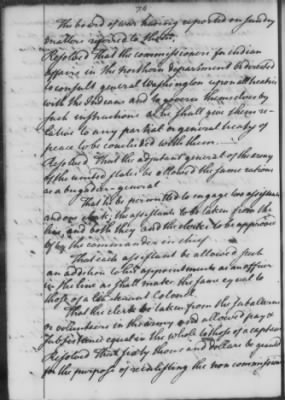 70
The board of war having reported on sundry
matters referred to them
Resolved That the commissioners for indian
affairs in the northern department be directed
to consult general Washington upon all treaties
with the Indians and to govern themselves by
such instructions as he shall give them re-
lative to any partial or general treaty of
peace to be concluded with them.
Resolved That the adjutant general of the army
of the united states be allowed the same rations
as a brigadier-general
That he be permitted to engage two assistants
and one clerk, the assistants to be taken from the
line, and both they and the clerk to be approved
by the commander in chief
That each assistant be allowed such
an addition to his appointments as an officer
in the line as shall make the same equal to
those of a lieutenant Colonel.
That the clerk be taken from the subalterns
or volunteers in the army and allowed pay &
subsistence equal in the whole to those of a captain
Resolved That sixty thousand dollars be granted
for the purpose of reinlisting the non commission